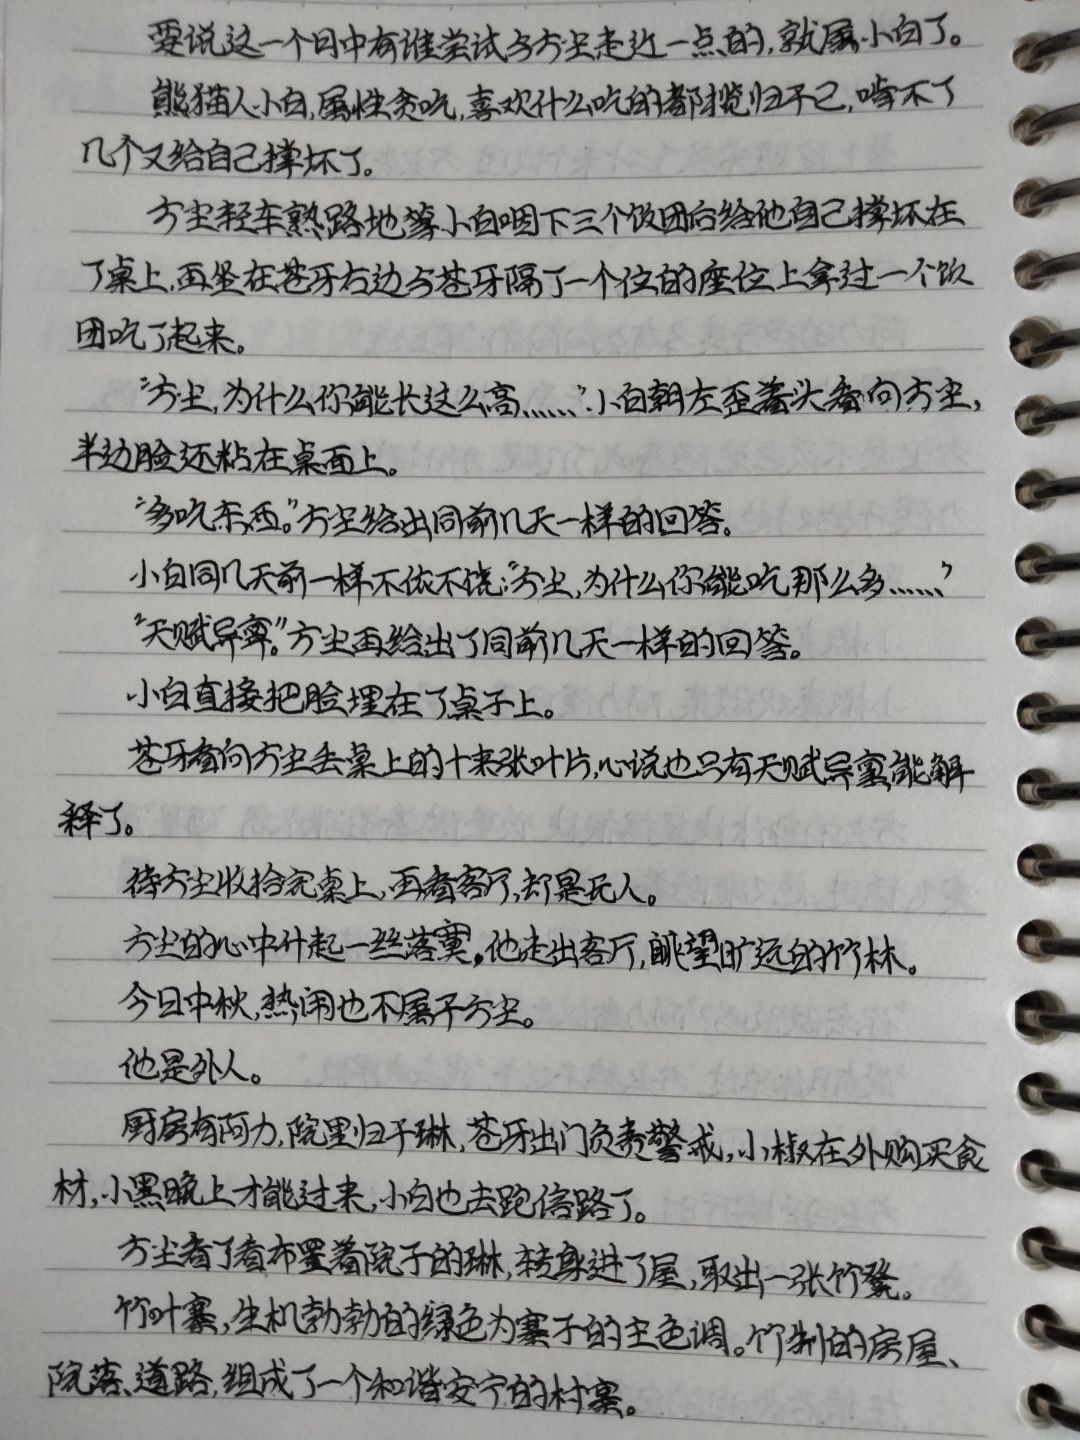 要说这一个月中有谁尝试与方尘走近一点的,就属小白了。
熊猫人小白,属性贪吃,喜欢什么吃的都揽归于己,啃不了
几个又给自己撑坏了。
方尘轻车熟路地等小白咽下三个饭团后给他自己撑坏在
了桌上,再坐在苍牙右边与苍牙隔了一个位的座位上拿过一个饭
团吃了起来。
“方尘,为什么你能长这么高……”小白朝左歪着头看向方尘,
半边脸还粘在桌面上。
“多吃东西。”方尘给出同前几天一样的回答。
小白同几天前一样不依不饶:“方尘,为什么你能吃那么多……”
“天赋异禀。”方尘再给出了同前几天一样的回答。
小白直接把脸埋在了桌子上。
苍牙看向方尘丢桌上的十来张叶片,心说也只有天赋异禀能解
释了。
待方尘收拾完桌上,再看客厅,却是无人。
方尘的心中升起一丝落寞。他走出客厅,眺望旷远的竹林。
今日中秋,热闹也不属于方尘。
他是外人。
厨房有阿力,院里归于琳,苍牙出门负责警戒,小椒在外购买食
材,小黑晚上才能过来,小白也去跑信路了。
方尘看了看布置着院子的琳,转身进了屋,取出一张竹凳。
竹叶寨,生机勃勃的绿色为寨子的主色调。竹制的房屋、
院落、道路,组成了一个和谐安宁的村寨。